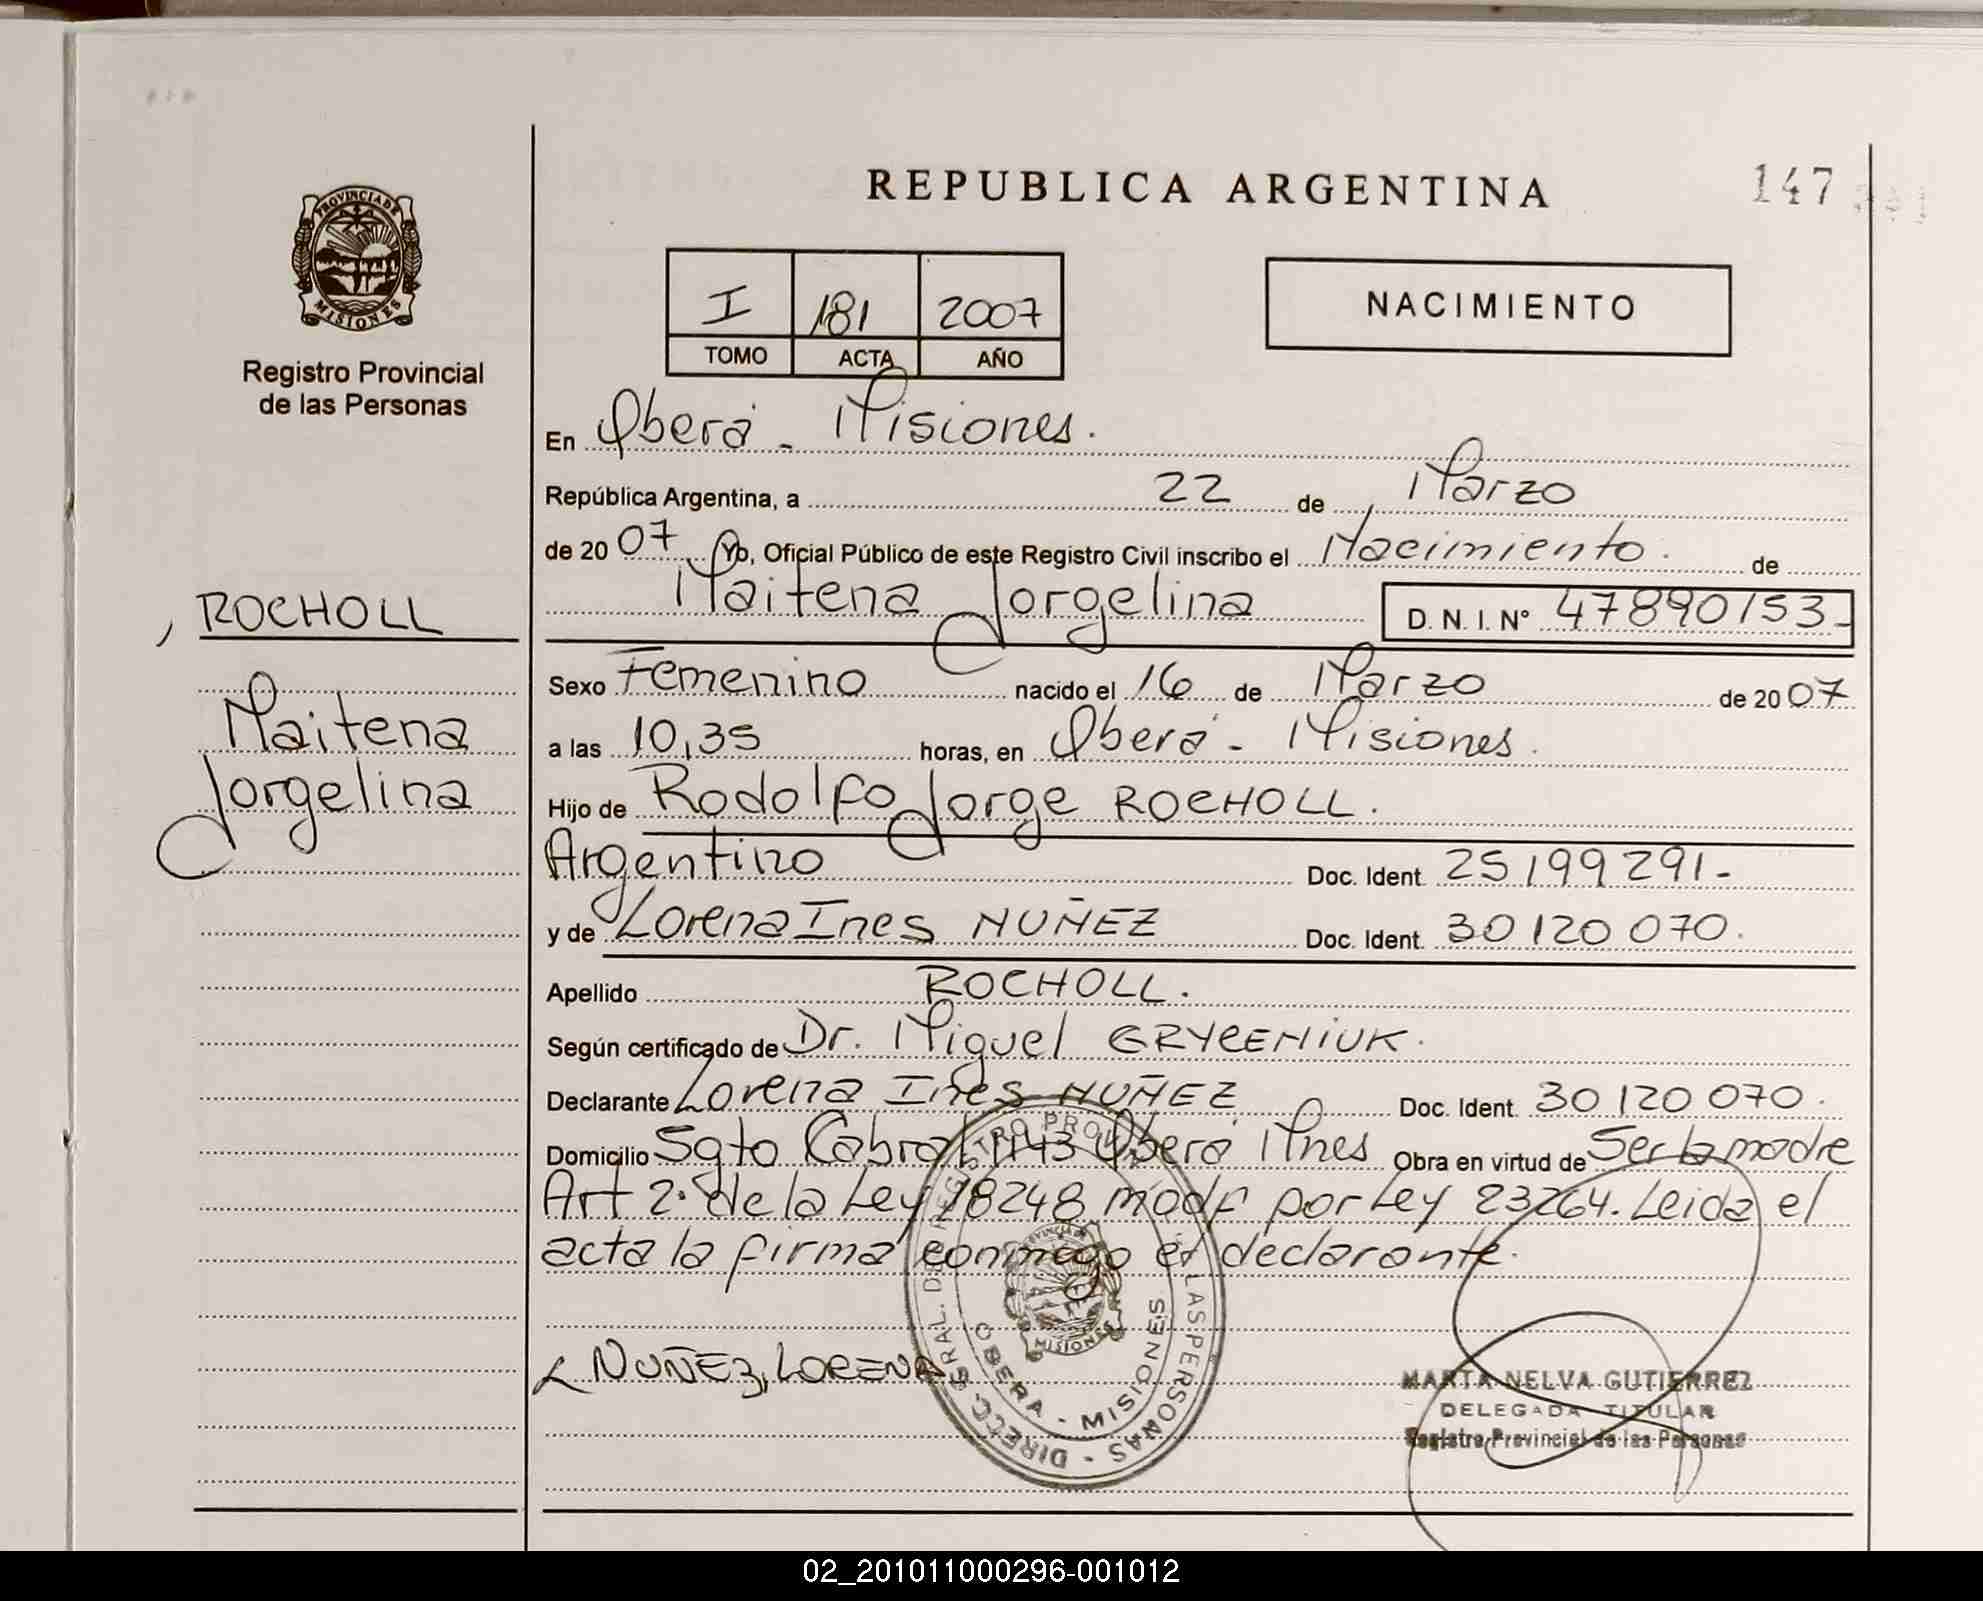 REPUBLICA ARGENTINA
147
PROVINCIA DE
MISIONES
Registro Provincial
de las Personas
I 181 2007
TOMO ACTA AÑO
NACIMIENTO
En Oberá - Misiones.
República Argentina, a 22 de Marzo
de 20 07 Yo, Oficial Público de este Registro Civil inscribo el Nacimiento. de
Maitena Jorgelina D. N. I. Nº 47890153-
, ROCHOLL
Maitena
Jorgelina
Sexo Femenino nacido el 16 de Marzo de 20 07
a las 10,35 horas, en Oberá - Misiones.
Hijo de Rodolfo Jorge ROCHOLL.
Argentino Doc. Ident. 25199291-
y de Lorena Ines NUÑEZ Doc. Ident. 30120070.
Apellido ROCHOLL.
Según certificado de Dr. Miguel GRYCENIUK.
Declarante Lorena Ines NUÑEZ Doc. Ident. 30120070.
Domicilio Sgto Cabral 1143 Oberá Mnes Obra en virtud de Ser la madre
Art 2. de la Ley 18248 modf por Ley 23264. Leida el
acta la firma conmigo el declarante.
NUÑEZ, LORENA
DIRECC. GRAL. DE REGISTRO PROVINCIAL DE LAS PERSONAS -
OBERA - MISIONES
MISIONES
MARTA NELVA GUTIERREZ
DELEGADA TITULAR
Registro Provincial de las Personas
02_201011000296-001012